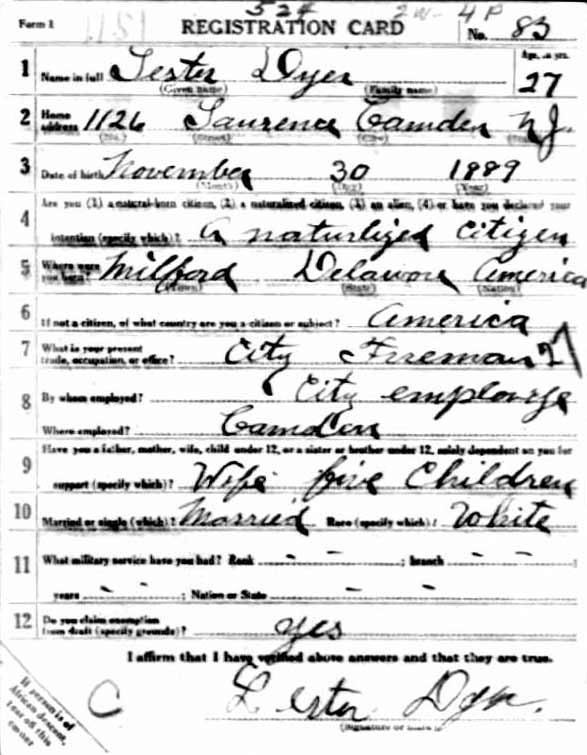 524 2W- 4P
Form 1 1151 REGISTRATION CARD No. 83
1 Name in full Lester Dyer Age, in yrs. 27
(Given name) (Family name)
2 Home address 1126 Laurence Camden N J.
(No.) (Street) (City)
3 Date of birth November 30 1889
(Month) (Day) (Year)
4 Are you (1) a natural-born citizen, (2) a naturalized citizen, (3) an alien, (4) or have you declared your
intention (specify which)? A naturlized Citizen
5 Where were you born? Milford Delaware America
(Town) (State) (Nation)
6 If not a citizen, of what country are you a citizen or subject? America
7 What is your present trade, occupation, or office? City Fireman 27
8 By whom employed? City employge
Where employed? Camden
9 Have you a father, mother, wife, child under 12, or a sister or brother under 12, solely dependent on you for
support (specify which)? Wife five Children
10 Married or single (which)? Married Race (specify which)? White
11 What military service have you had? Rank - - ; branch - - ;
years - - ; Nation or State - -
12 Do you claim exemption from draft (specify grounds)? yes
I affirm that I have verified above answers and that they are true.
C Lester Dyer.
(Signature or mark)
If person is of
African descent,
tear off this
corner